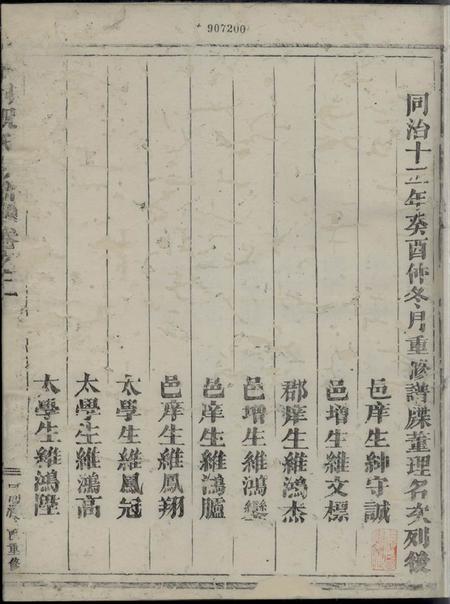 907200
同治十二年癸酉仲冬月重修譜牒董理名次列後
邑庠生紳守誠
邑增生維文標
郡庠生維鴻杰
邑增生維鴻鑾
邑庠生維鴻臚
邑庠生維鳳翔
太學生維鳳冠
太學生維鴻高
太學生維鴻陞
酉重修